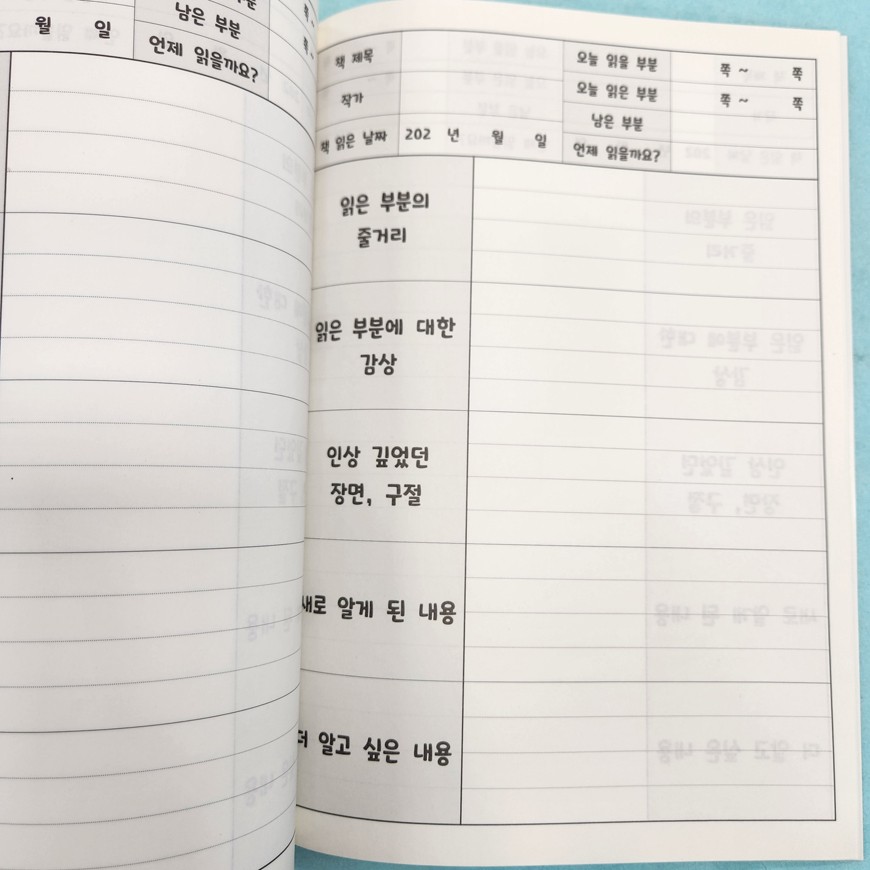 남은 부분
월 일
언제 읽을까요?
책 제목
오늘 읽을 부분
쪽 ~ 쪽
작가
오늘 읽은 부분
쪽 ~ 쪽
남은 부분
책 읽은 날짜
202 년 월 일
언제 읽을까요?
읽은 부분의
줄거리
읽은 부분에 대한
감상
인상 깊었던
장면, 구절
새로 알게 된 내용
더 알고 싶은 내용